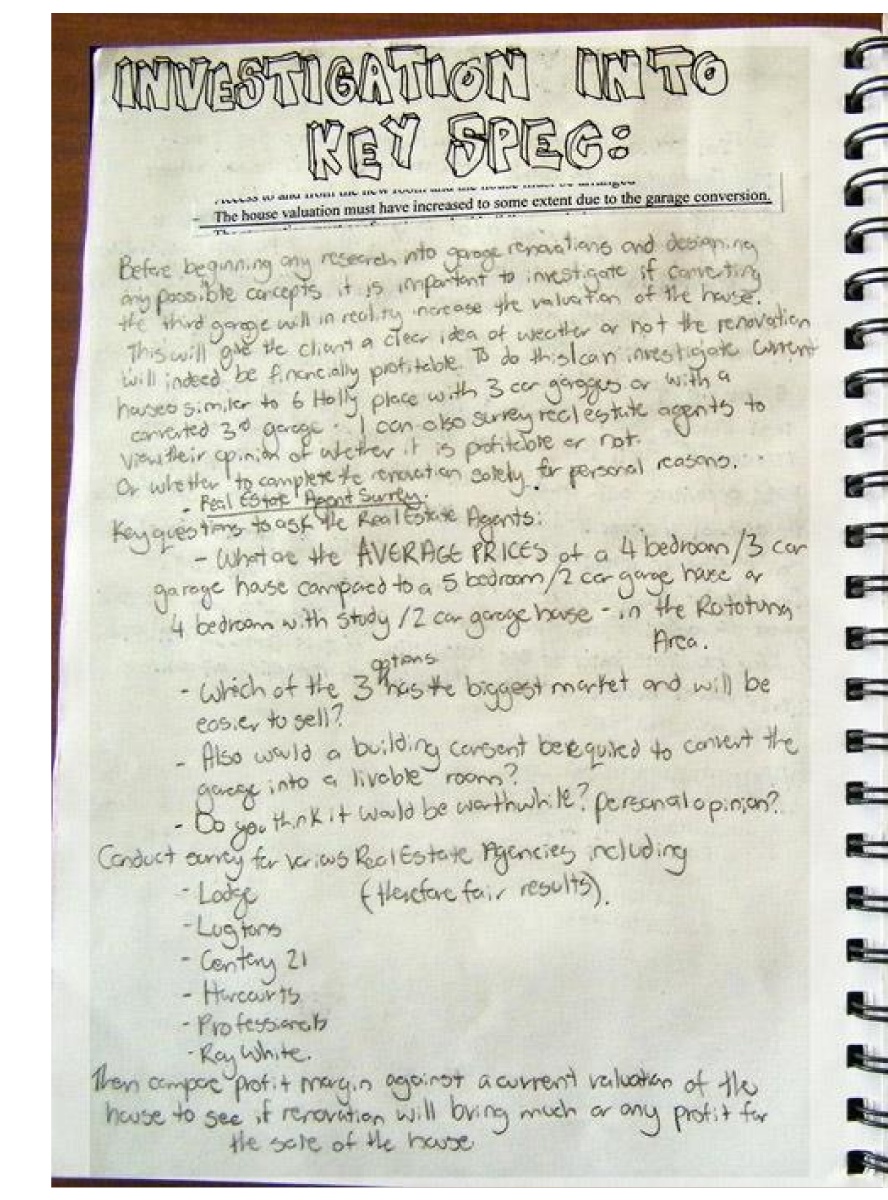 INVESTIGATION INTO
KEY SPEC:
Access to and from the new room and the house must be arranged
- The house valuation must have increased to some extent due to the garage conversion.
Before beginning any research into garage renovations and designing
any possible concepts it is important to investigate if converting
the third garage will in reality increase the valuation of the house.
This will give the client a clear idea of weather or not the renovation
will indeed be financially profitable. To do this I can investigate current
houses similer to 6 Holly place with 3 car garages or with a
converted 3rd garage. I can also survey real estate agents to
view their opinion of whether it is profitable or not.
Or whether to complete the renovation solely for personal reasons.
- Real Estate Agent Survey.
Key questions to ask the Real Estate Agents:
- What are the AVERAGE PRICES of a 4 bedroom/3 car
garage house compared to a 5 bedroom/2 car garage house or
4 bedroom with study/2 car garage house - in the Rototuna
Area.
- Which of the 3 options has the biggest market and will be
easier to sell?
- Also would a building consent be required to convert the
garage into a livable room?
- Do you think it would be worthwhile? personal opinion?
Conduct survey for various Real Estate Agencies including
- Lodge (therefore fair results).
- Lugtons
- Century 21
- Harcourts
- Professionals
- Ray White.
Then compare profit margin against a current valuation of the
house to see if renovation will bring much or any profit for
the sale of the house